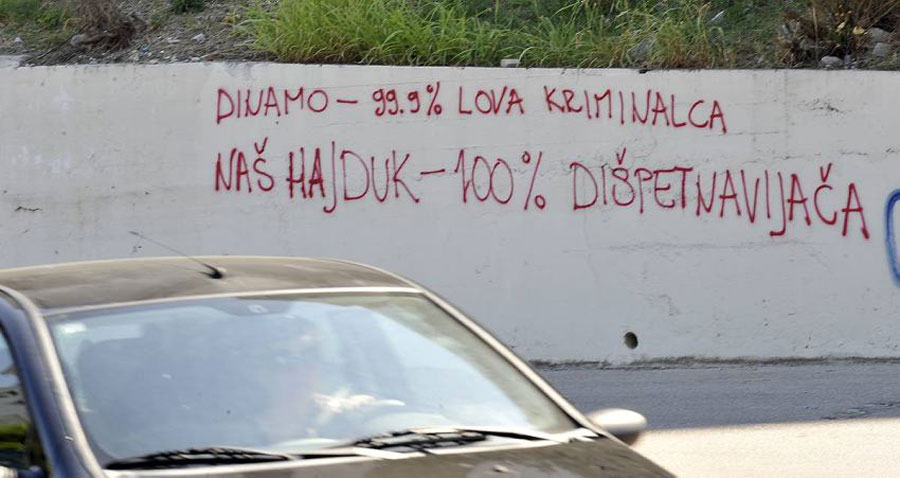 DINAMO - 99.9% LOVA KRIMINALCA
NAŠ HAJDUK - 100% DIŠPET NAVIJAČA